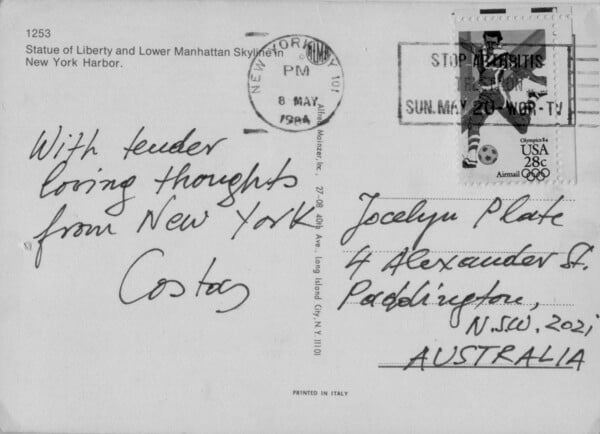 1253
Statue of Liberty and Lower Manhattan Skyline in
New York Harbor.
With tender
loving thoughts
from New York
Costas
Alfred Mainzer, Inc., 27-08 40th Ave., Long Island City, N.Y. 11101
NEW YORK, NY 101
PM
8 MAY
1984
STOP ARTHRITIS
TELETHON
SUN. MAY 20-WOR-TV
Olympics 84
USA
28c
Airmail
Jocelyn Plate
4 Alexander St.
Paddington,
N.S.W. 2021
AUSTRALIA
PRINTED IN ITALY